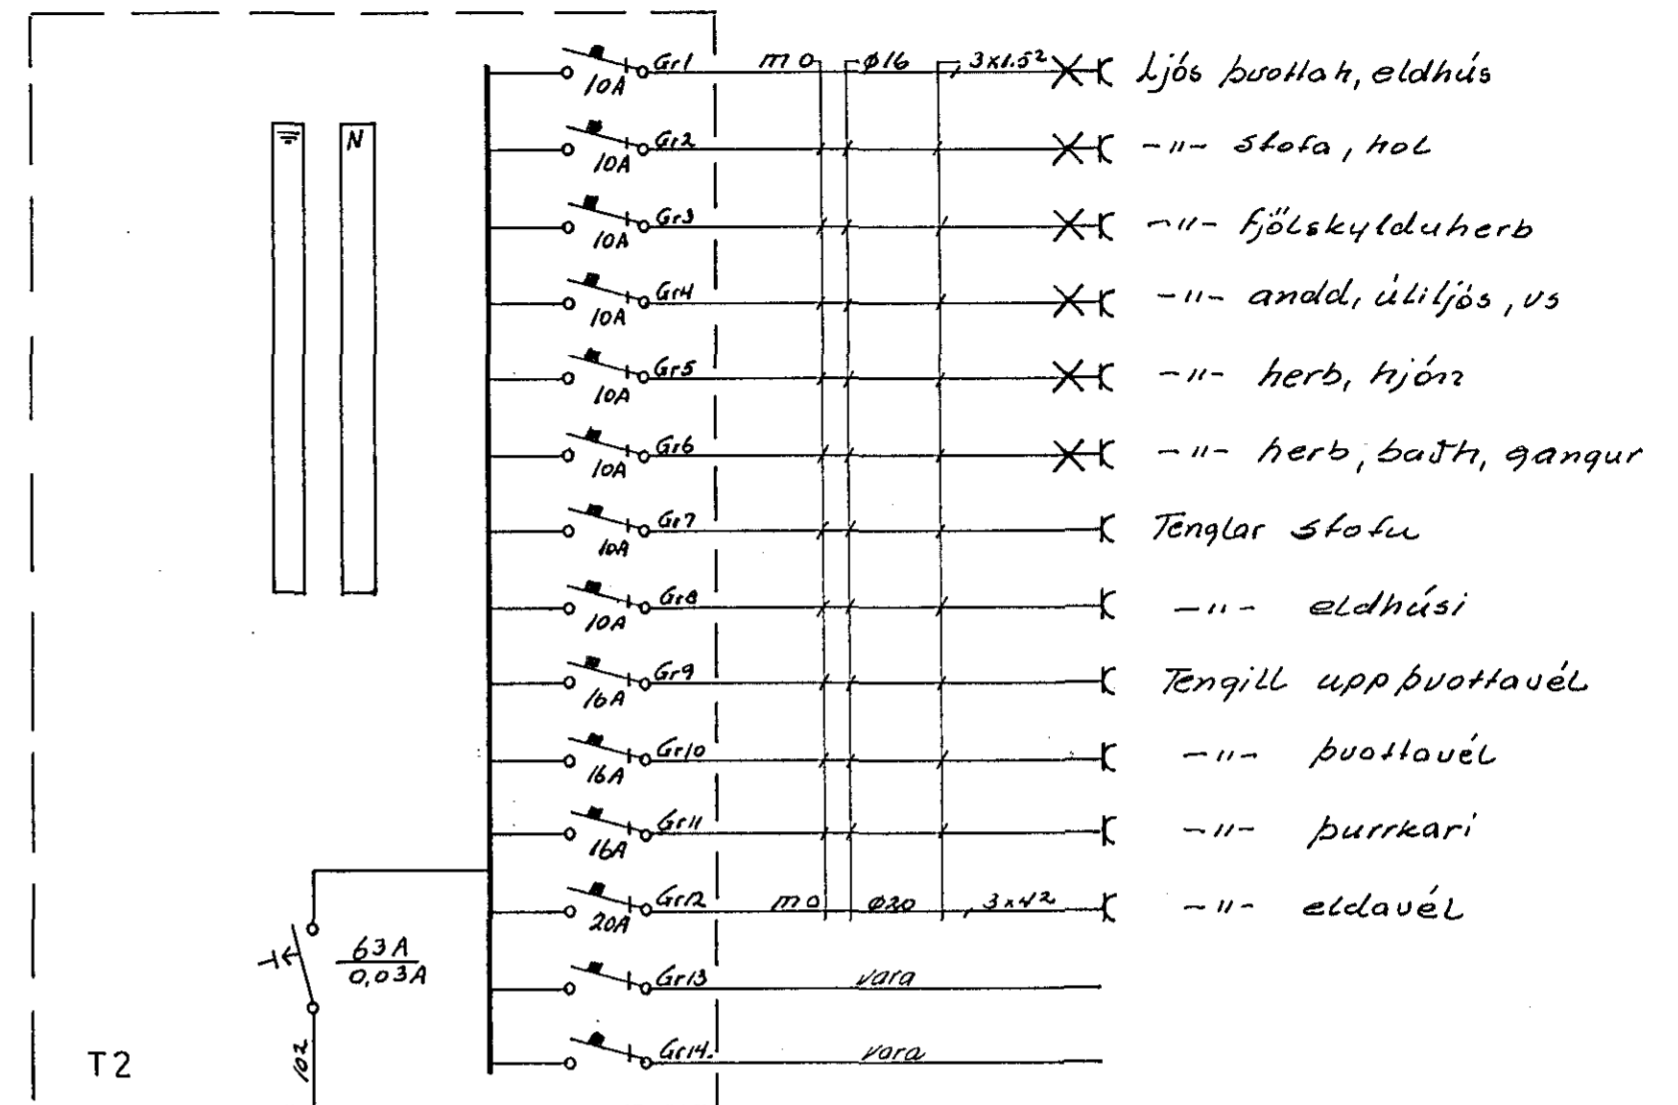 Gr1 m0 ø16 3x1.5² Ljós þvottah, eldhús
10A
N
Gr2 -"- stofa, hol
10A
Gr3 -"- fjölskylduherb
10A
Gr4 -"- andd, útiljós, vs
10A
Gr5 -"- herb, hjón
10A
Gr6 -"- herb, baðh, gangur
10A
Gr7 Tenglar stofu
10A
Gr8 -"- eldhúsi
10A
Gr9 Tengill uppþvottavél
16A
Gr10 -"- þvottavél
16A
Gr11 -"- þurrkari
16A
Gr12 m0 ø20 3x4² -"- eldavél
20A
63A
0,03A
Gr13 vara
Gr14. vara
T2
102